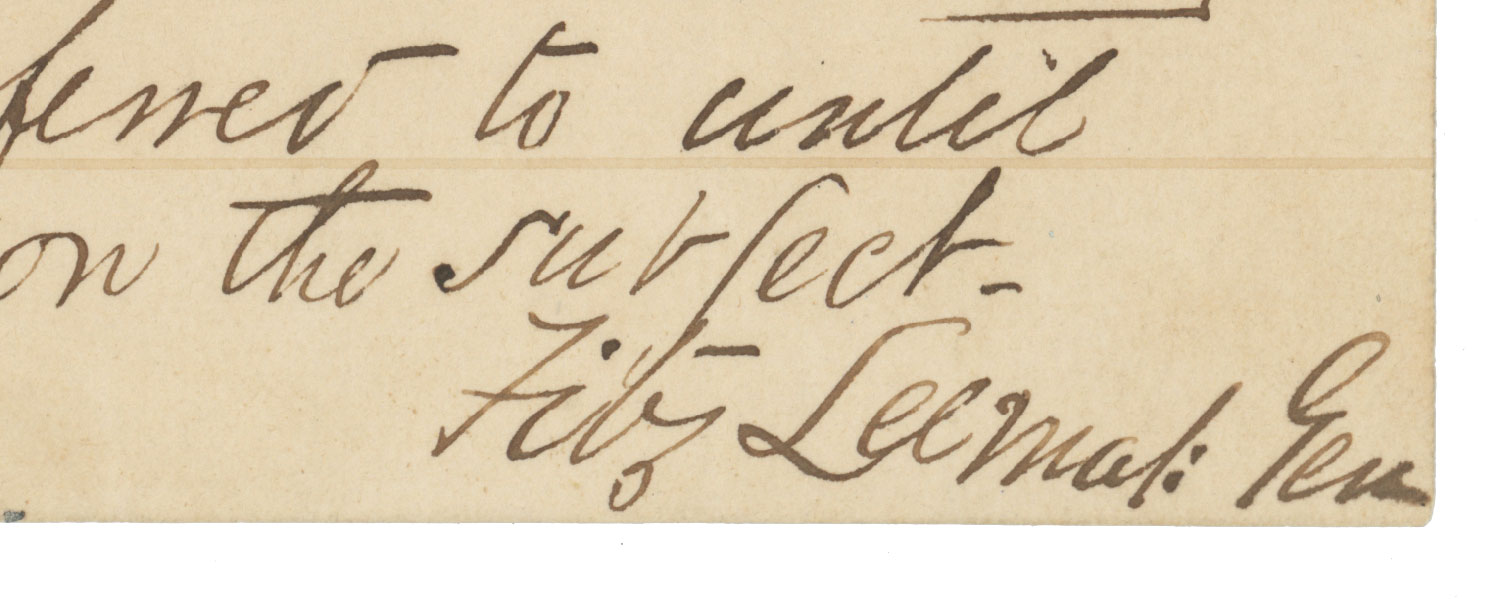 ferred to until
on the subject-
Fitz Lee Maj: Gen